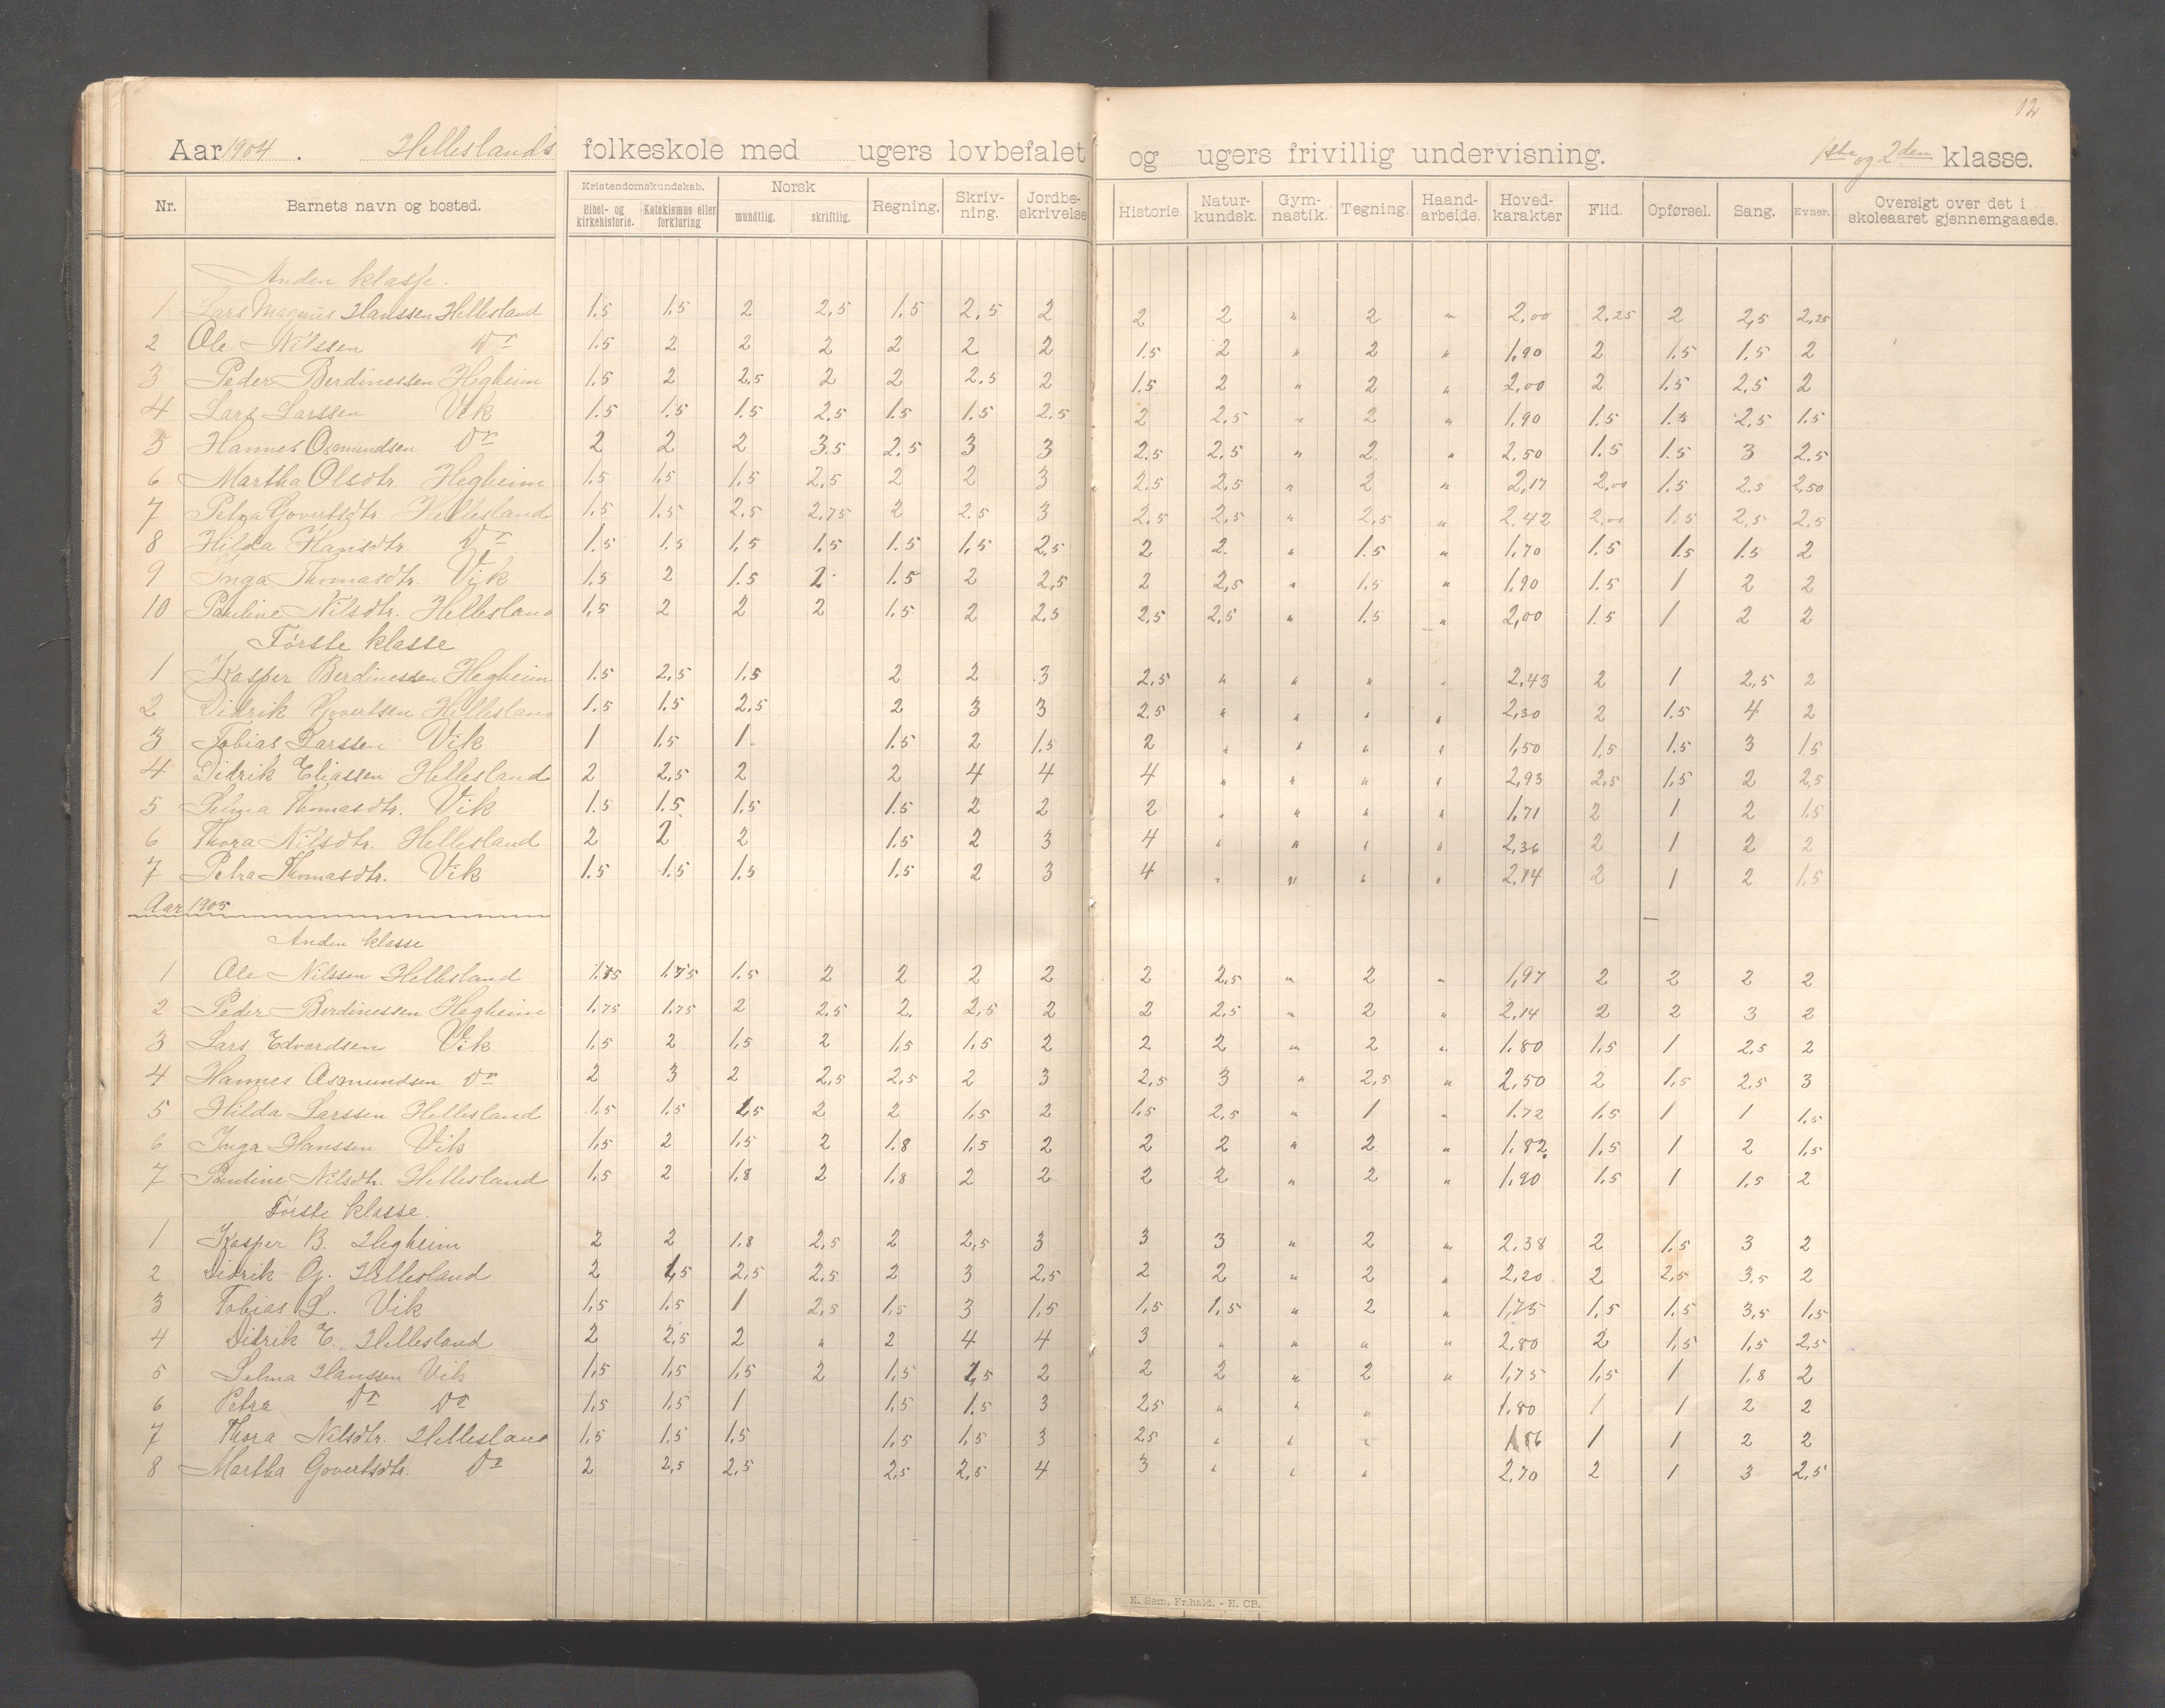 12
Aar 1904 . Helleslands folkeskole med ugers lovbefalet og ugers frivillig undervisning. 1ste og 2den klasse.
Nr. Barnets navn og bosted. Kristendomskundskab. Bibel- og kirkehistorie. Katekismus eller forklaring Norsk mundtlig. skriftlig. Regning. Skriv- ning. Jordbe- skrivelse Historie. Natur- kundsk. Gym- nastik. Tegning. Haand- arbeide. Hoved- karakter Flid. Opførsel. Sang. Evner. Oversigt over det i skoleaaret gjennemgaaede.
Anden klasse.
1 Lars Magnus Hanssen Hellesland 1.5 1.5 2 2,5 1.5 2,5 2 2 2 " 2 " 2,00 2,25 2 2,5 2,25
2 Ole Nilssen Do 1.5 2 2 2 2 2 2 1.5 2 " 2 " 1,90 2 1.5 1.5 2
3 Peder Berdinessen Hegheim 1.5 2 2,5 2 2 2.5 2 1.5 2 " 2 " 2,00 2 1.5 2,5 2
4 Lars Larssen Vik 1.5 1.5 1.5 2,5 1.5 1.5 2,5 2 2.5 " 2 " 1,90 1.5 1.5 2.5 1.5
5 Hannes Osmundsen Do 2 2 2 3.5 2,5 3 3 2.5 2,5 " 2 " 2,50 1.5 1.5 3 2.5
6 Martha Olsdtr. Hegheim 1.5 1.5 1.5 2,5 2 2 3 2.5 2,5 " 2 " 2,17 2,00 1.5 2,5 2,50
7 Petra Govertsdtr. Hellesland 1.5 1.5 2.5 2.75 2 2.5 3 2,5 2,5 " 2,5 " 2,42 2,00 1.5 2,5 2,5
8 Hilda Hansdtr. Do 1.5 1.5 1,5 1,5 1.5 1,5 2,5 2 2 " 1.5 " 1,70 1.5 1.5 1.5 2
9 Inga Thomasdtr. Vik 1.5 2 1.5 2 1.5 2 2,5 2 2,5 " 1.5 " 1,90 1.5 1 2 2
10 Pauline Nilsdtr. Hellesland 1,5 2 2 2 1.5 2 2.5 2,5 2,5 " 1.5 " 2,00 1.5 1 2 2
Første klasse
1 Kasper Berdinessen Hegheim 1.5 2,5 1.5 2 2 3 2,5 " " " " 2,43 2 1 2,5 2
2 Didrik Govertsen Hellesland 1.5 1.5 2.5 2 3 3 2.5 " " " " 2,30 2 1.5 4 2
3 Tobias Larssen Vik 1 1.5 1 1.5 2 1.5 2 " " " " 1,50 1,5 1.5 3 1.5
4 Didrik Eliassen Hellesland 2 2,5 2 2 4 4 4 " " " " 2,93 2.5 1.5 2 2,5
5 Selma Thomasdtr. Vik 1.5 1.5 1.5 1.5 2 2 2 " " " " 1,71 2 1 2 1.5
6 Thora Nilsdtr. Hellesland 2 2 2 1.5 2 3 4 " " " " 2,36 2 1 2 2
7 Petra Thomasdtr. Vik 1.5 1.5 1.5 1.5 2 3 4 " " " " 2.14 2 1 2 1.5
Aar 1905
Anden klasse
1 Ole Nilssen Hellesland 1.75 1.75 1.5 2 2 2 2 2 2,5 " 2 " 1,97 2 2 2 2
2 Peder Berdinessen Hegheim 1.75 1.75 2 2.5 2 2,5 2 2 2.5 " 2 " 2,14 2 2 3 2
3 Lars Edvardsen Vik 1,5 2 1,5 2 1,5 1.5 2 2 2 " 2 " 1.80 1,5 1 2.5 2
4 Hannes Osmundsen Do 2 3 2 2,5 2,5 2 3 2,5 3 " 2,5 " 2,50 2 1,5 2,5 3
5 Hilda Larssen Hellesland 1.5 1.5 1,5 2 2 1,5 2 1.5 2,5 " 1 " 1.72 1,5 1 1 1.5
6 Inga Hanssen Vik 1,5 2 1,5 2 1.8 1,5 2 2 2 " 2 " 1.82 1,5 1 2 1.5
7 Pauline Nilsdtr. Hellesland 1,5 2 1.8 2 1.8 2 2 2 2 " 2 " 1,90 1.5 1 1.5 2
Første klasse.
1 Kasper B. Hegheim 2 2 1.8 2,5 2 2,5 3 3 3 " 2 " 2,38 2 1,5 3 2
2 Didrik G. Hellesland 2 1,5 2,5 2.5 2 3 2,5 2 2 " 2 " 2,20 2 2,5 3.5 2
3 Tobias L. Vik 1,5 1,5 1 2,5 1,5 3 1,5 1,5 1,5 " 2 " 1,75 1,5 1,5 3,5 1,5
4 Didrik E. Hellesland 2 2,5 2 " 2 4 4 3 " " " " 2,80 2 1,5 1,5 2,5
5 Selma Hanssen Vik 1,5 1,5 1,5 2 1,5 1,5 2 2 2 " 2 " 1,75 1,5 1 1.8 2
6 Petra Do Do 1,5 1,5 1 1,5 1.5 3 2,5 " " " 1.80 1 1 2 2
7 Thora Nilsdtr. Hellesland 1,5 1.5 1.5 1,5 1,5 3 2.5 " " " 1 1 2 2
8 Martha Govertsdtr. Do 2 2,5 2,5 2,5 2,5 4 3 " " " 2,70 2 1 3 2,5
E. Sem, Fr.hald. - E. CB.